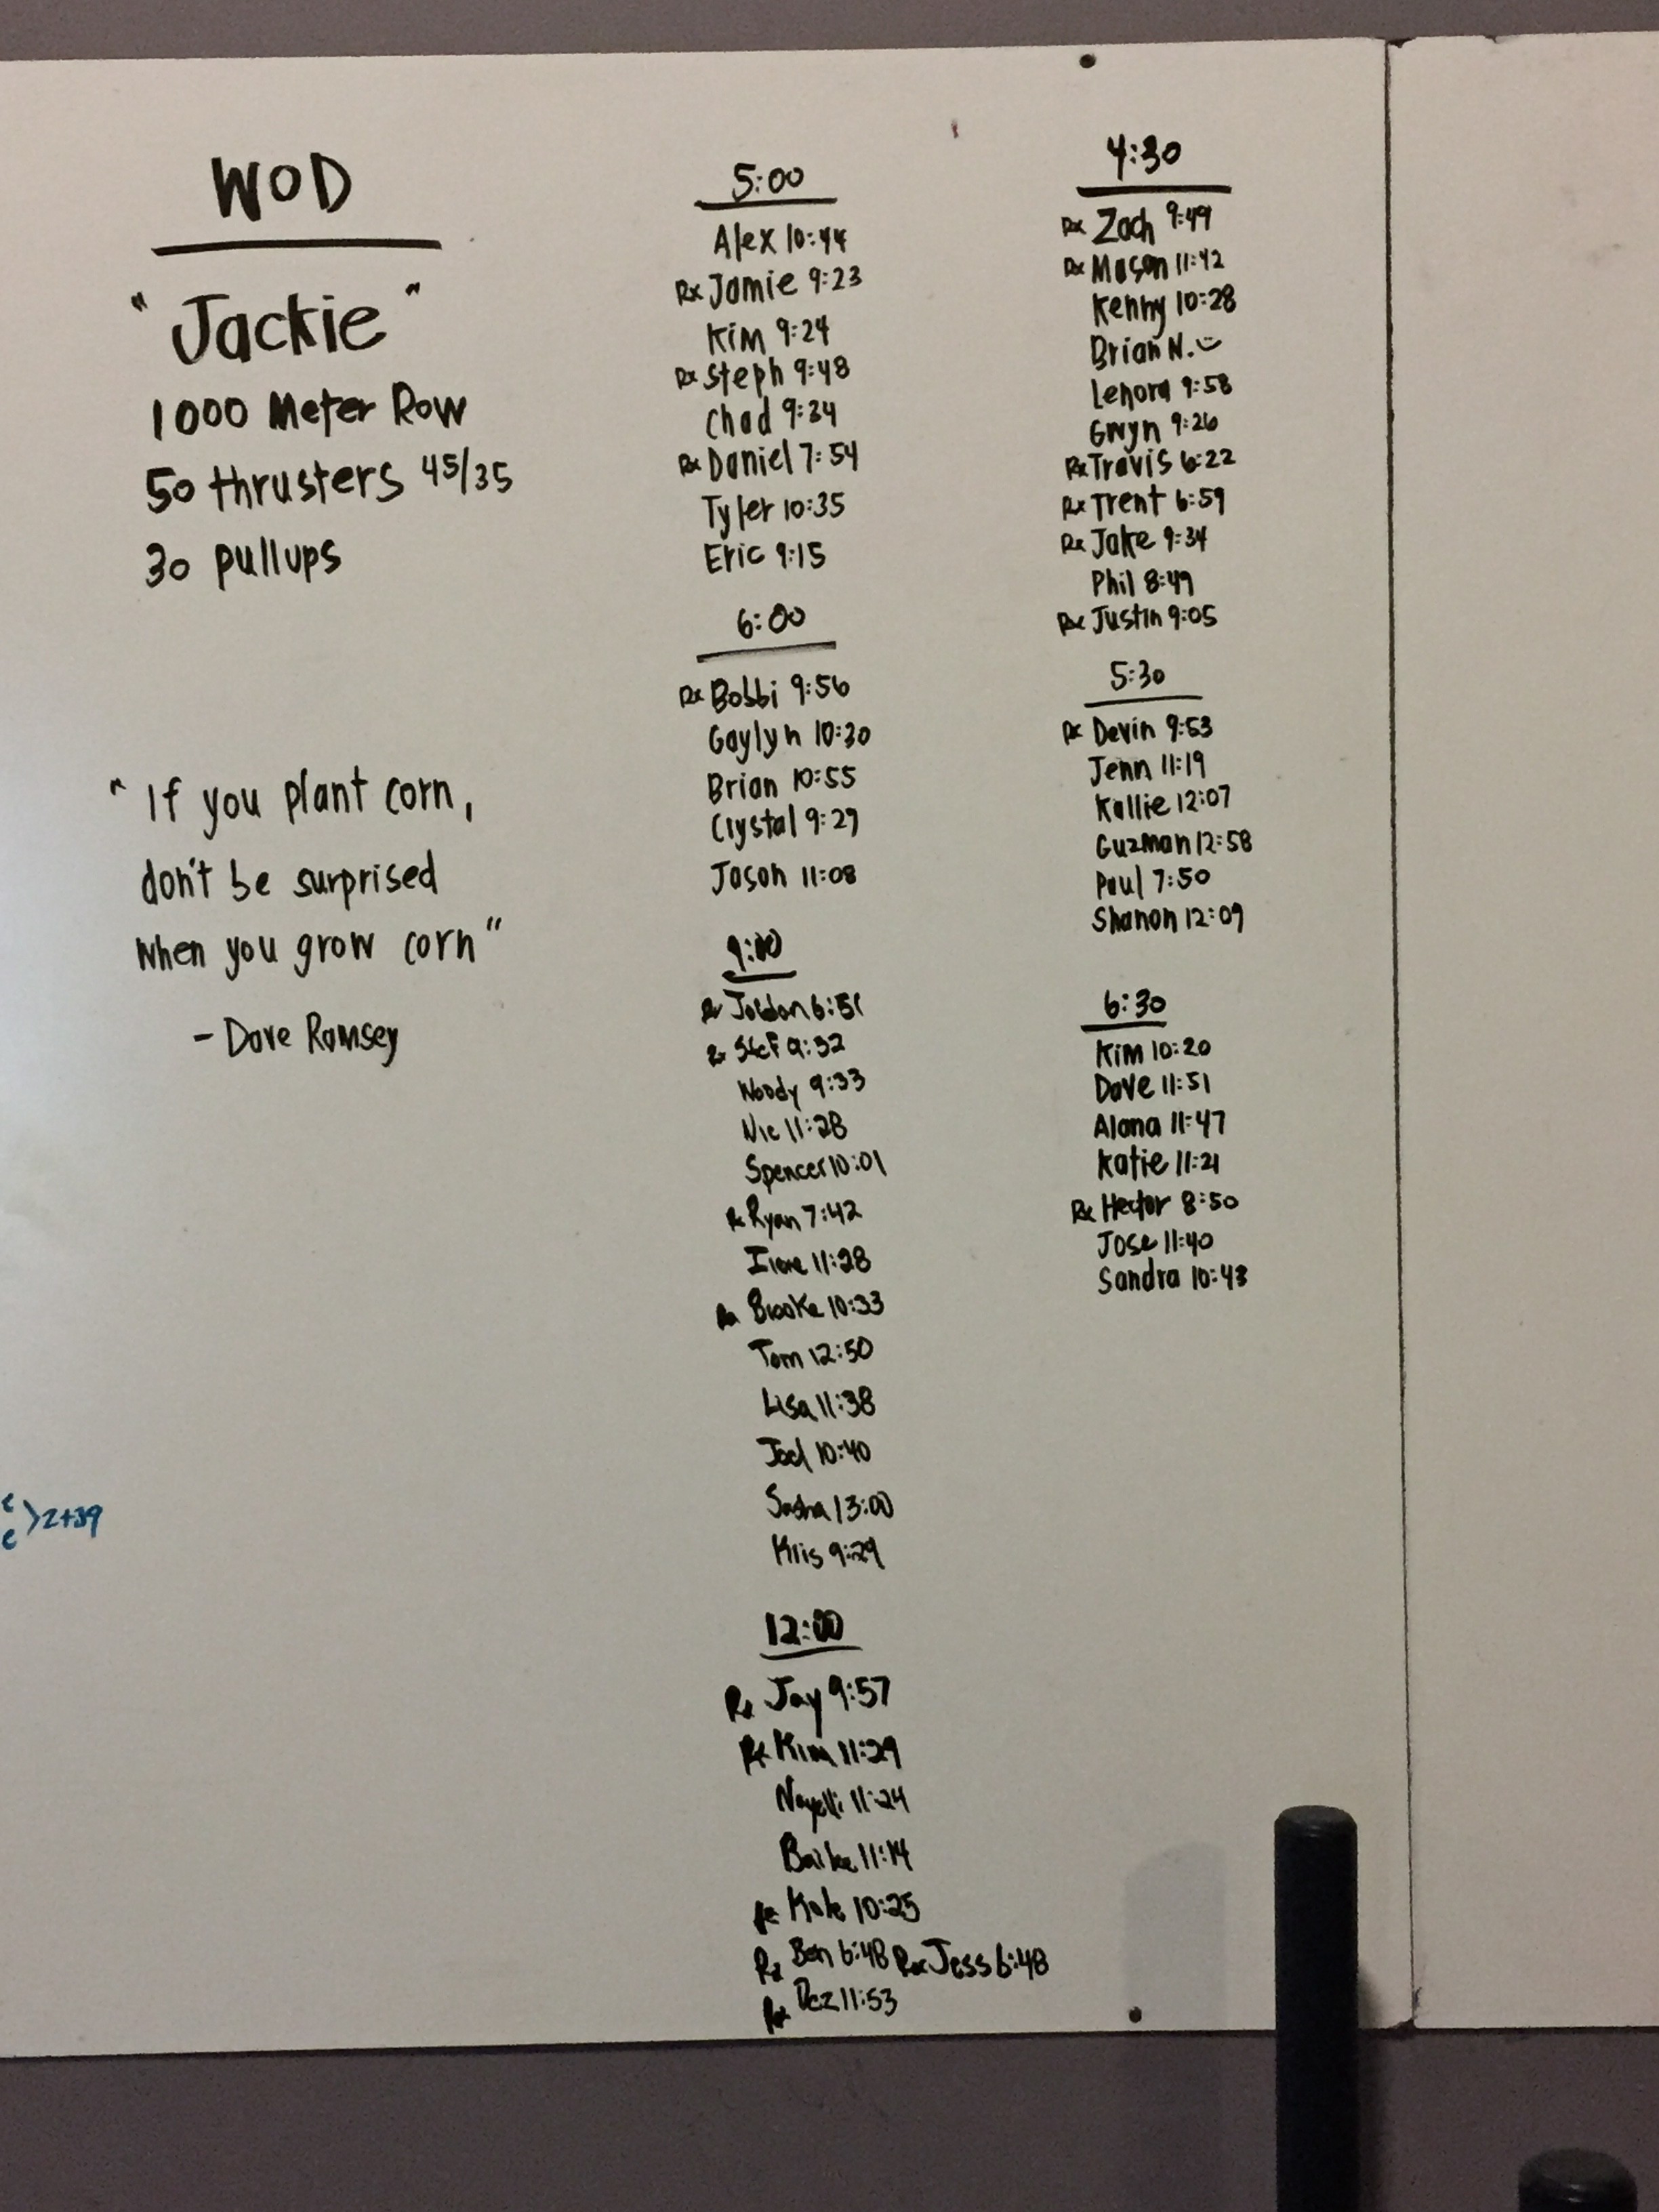 WOD
"Jackie"
1000 Meter Row
50 thrusters 45/35
30 pullups
"If you plant corn,
don't be surprised
when you grow corn"
- Dave Ramsey
>2+39
5:00
Alex 10:44
Rx Jamie 9:23
Kim 9:24
Rx Steph 9:48
Chad 9:34
Rx Daniel 7:54
Tyler 10:35
Eric 9:15
6:00
Rx Bobbi 9:56
Gaylyn 10:30
Brian 10:55
Crystal 9:29
Jason 11:08
9:00
Rx Jordan 6:51
Rx 9:32
Woody 9:33
Nic 11:28
Spencer 10:01
Rx Ryan 7:42
11:28
Rx Brooke 10:33
Tom 12:50
Lisa 11:38
Joel 10:40
Sasha 13:00
Kris 9:29
12:00
Rx Jay 9:57
Rx Kim 11:29
Nayelli 11:24
11:14
Rx 10:25
Rx Ben 6:48 Rx Jess 6:48
Rx Dez 11:53
4:30
Rx Zach 9:49
Rx Mason 11:42
Kenny 10:28
Brian N.
Lenora 9:58
Gwyn 9:26
Rx Travis 6:22
Rx Trent 6:59
Rx Jake 9:34
Phil 8:49
Rx Justin 9:05
5:30
Rx Devin 9:53
Jenn 11:19
Kallie 12:07
Guzman 12:58
Paul 7:50
Shanon 12:09
6:30
Kim 10:20
Dave 11:51
Alana 11:47
Katie 11:21
Rx Hector 8:50
Jose 11:40
Sandra 10:43